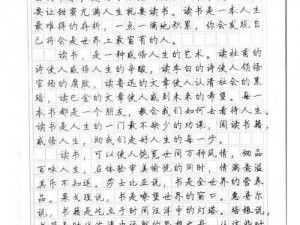 要让甜蜜充满人生就要读书。读书是一本人生
最难得的存折，一点一滴地积累，你会发现自
己将会是世界上最富有的人。
读书，是一种感悟人生的艺术。读杜甫的
诗使人感悟人生的辛酸，读李白的诗使人领悟
官场的腐败，读鲁迅的文章使人认清社会的黑
暗，读巴金的文章使人感到未来的希望。每一
本书都是一个朋友，教会我们如何去看待人生。
读书是人生的一门最不缺少的功课，阅读书籍，
感悟人生，助我们走好人生的每一步。
读书，可以使人饱览世间万种风情，细品
百味人生，在体验审美愉悦的同时，情满意溢
其乐不知返。莎士比亚说，书是全世界的营养
品。果戈理说，书是嘹望世界的窗口。惠普尔
说，书籍是屹立于时间汪洋中的灯塔。培根说，